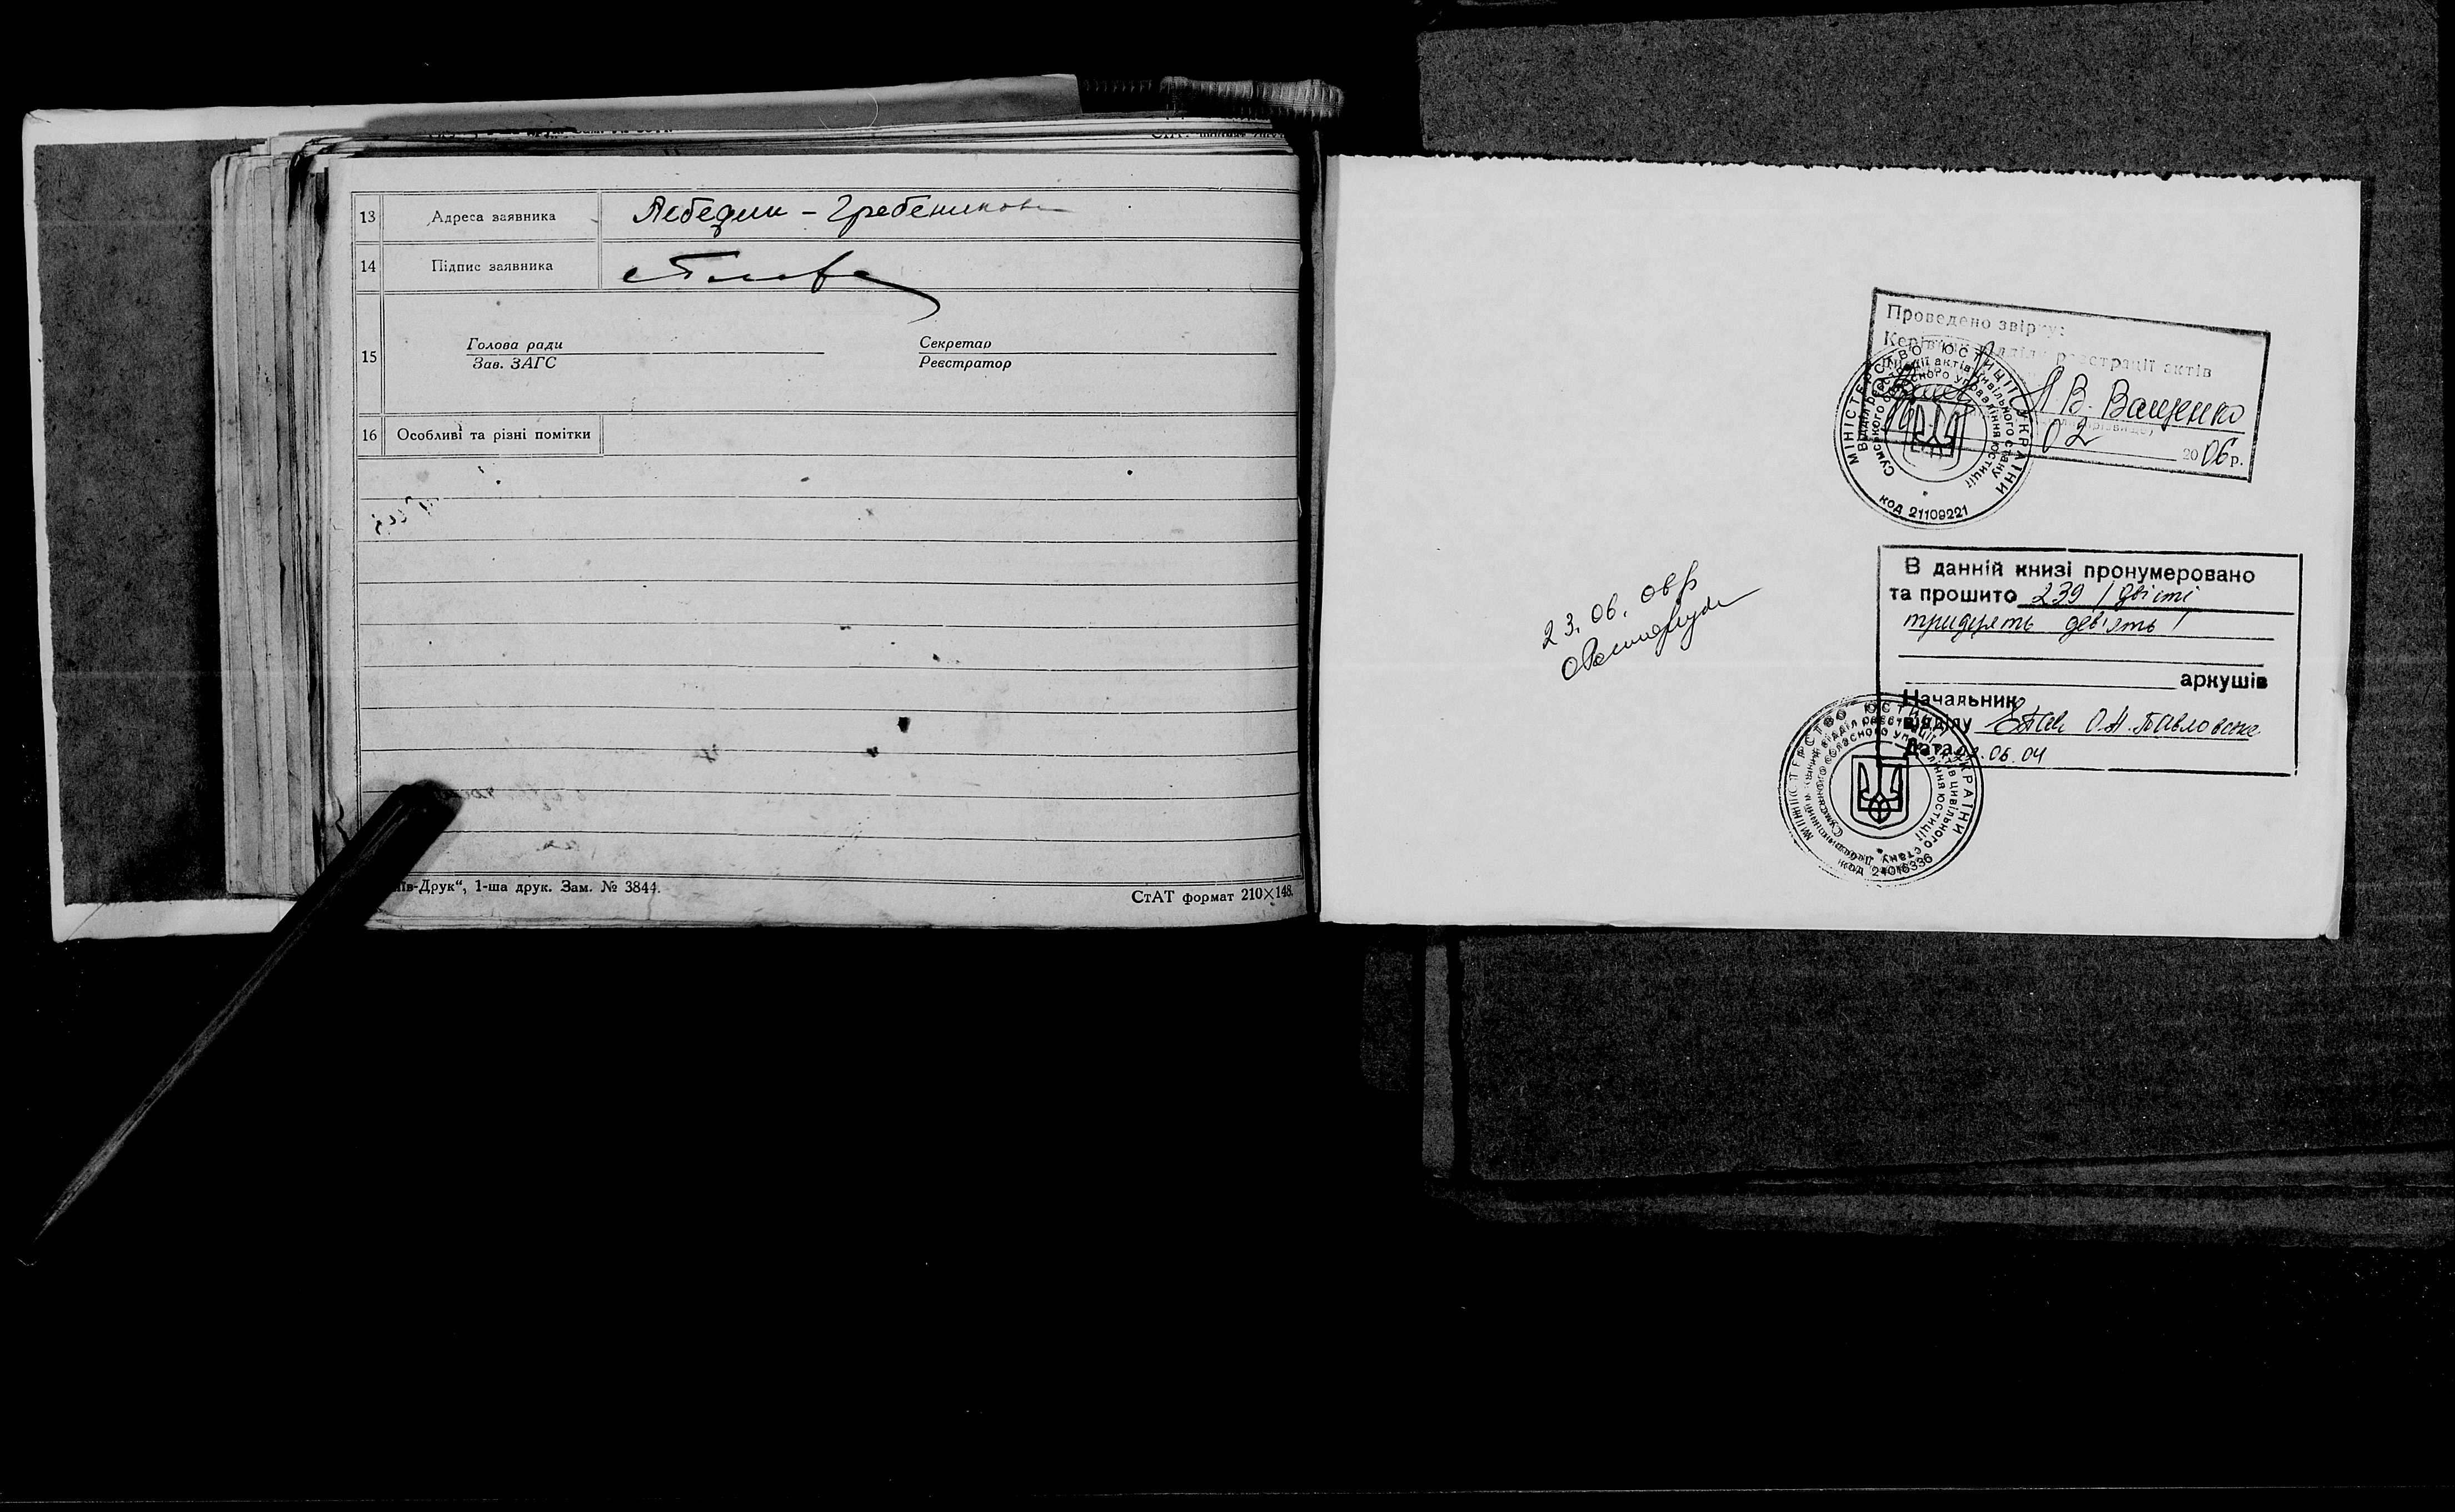 13 Адреса заявника Лебедин - Гребеникова
14 Підпис заявника
15 Голова ради Секретар
Зав. ЗАГС Реєстратор
16 Особливі та різні помітки
Друк“, 1-ша друк. Зам. № 3844.
СтАТ формат 210×148.
Проведено звірку:
Керівник відділу реєстрації актів
В. Ващенко
02 2006 р.
МІНІСТЕРСТВО ЮСТИЦІЇ УКРАЇНИ
Відділ реєстрації актів цивільного стану
Сумського обласного управління юстиції
код 21109221
23. 06. 06 р
В данній книзі пронумеровано
та прошито 239 / двісті
тридцять дев'ять /
аркушів
Начальник
відділу О.А. Павловська
Дата 06.04
МІНІСТЕРСТВО ЮСТИЦІЇ УКРАЇНИ